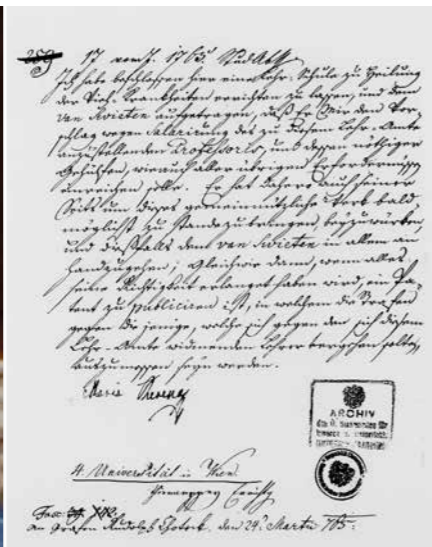 289 17 vom J. 1765. StudAkt
Ich habe beschlossen hier eine Lehr-Schule zu Heilung
der Vieh-Krankheiten errichten zu lassen, und dem
van Swieten aufgetragen, daß Er Mir den Vor-
schlag wegen Salarirung des zu diesem Lehr-Amte
anzustellenden Professoris, und dessen nöthiger
Gehülfen, wie auch aller übrigen Erfordernissen
anreichen solle. Er hat dahero auch seiner
Seits um dieses gemeinnützliche Werk bald-
möglichst zu Stande zu bringen, beyzuwürken,
und dießfalls dem van Swieten in allem an
Handzugehen; Gleichwie dann, wenn alles
seine Richtigkeit erlanget haben wird, ein Pa-
tent zu publiciren ist, in welchem die Strafen
gegen die jenige, welche sich gegen den sich diesem
Lehr-Amte widmenden Lehrer vergehen sollten,
auszumessen seyn werden.
Maria Theresia
ARCHIV
4. Universität in Wien
An Grafen Rudolph Chotek. den 24. Martii 765.